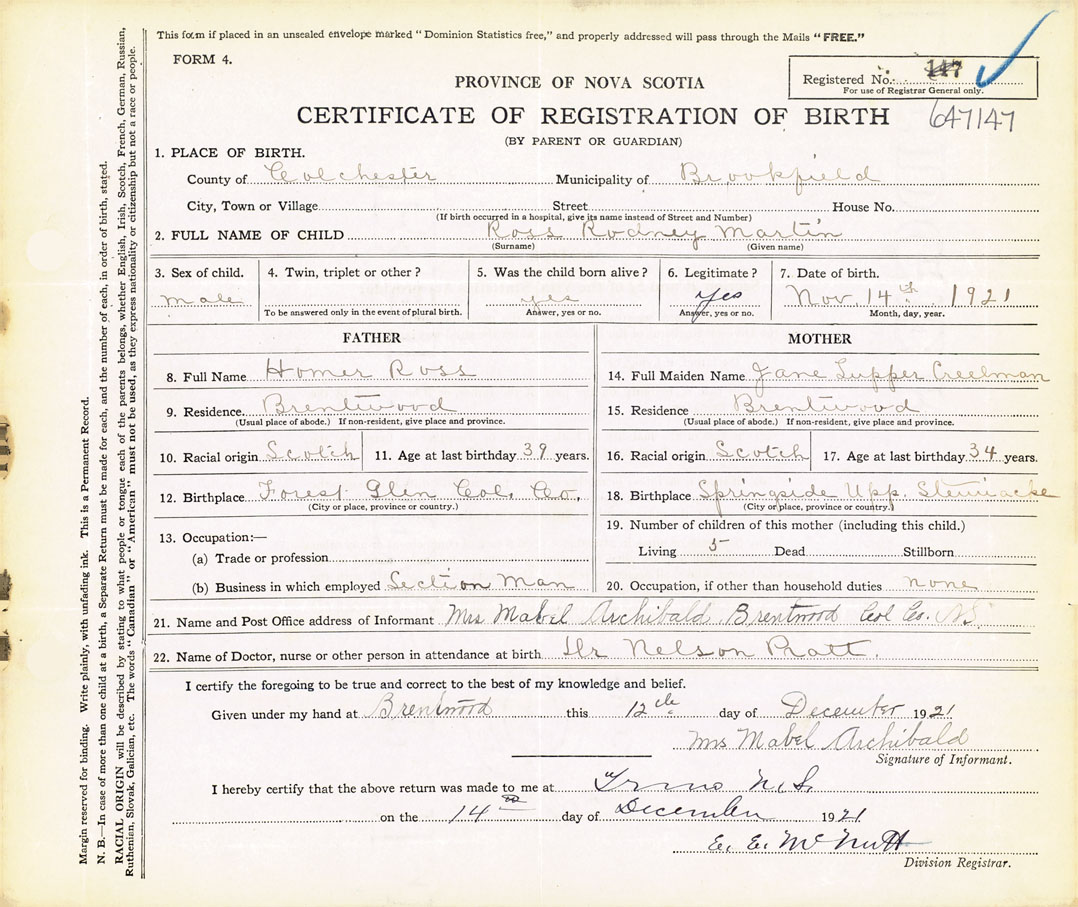 This form if placed in an unsealed envelope marked "Dominion Statistics free," and properly addressed will pass through the Mails "FREE."
FORM 4.
Registered No. 147
For use of Registrar General only.
PROVINCE OF NOVA SCOTIA
CERTIFICATE OF REGISTRATION OF BIRTH 647147
(BY PARENT OR GUARDIAN)
1. PLACE OF BIRTH.
County of Colchester Municipality of Brookfield
City, Town or Village Street House No.
(If birth occurred in a hospital, give its name instead of Street and Number)
2. FULL NAME OF CHILD Ross Rodney Martin
(Surname) (Given name)
3. Sex of child. 4. Twin, triplet or other? 5. Was the child born alive? 6. Legitimate? 7. Date of birth.
male yes yes Nov. 14th 1921
To be answered only in the event of plural birth. Answer, yes or no. Answer, yes or no. Month, day, year.
FATHER MOTHER
8. Full Name Homer Ross 14. Full Maiden Name Jane Tupper Creelman
9. Residence Brentwood 15. Residence Brentwood
(Usual place of abode.) If non-resident, give place and province. (Usual place of abode.) If non-resident, give place and province.
10. Racial origin Scotch 11. Age at last birthday 39 years. 16. Racial origin Scotch 17. Age at last birthday 34 years.
12. Birthplace Forest Glen Col. Co. 18. Birthplace Springside Upp. Stewiacke
(City or place, province or country.) (City or place, province or country.)
13. Occupation:— 19. Number of children of this mother (including this child.)
(a) Trade or profession Living 5 Dead Stillborn
(b) Business in which employed Section Man 20. Occupation, if other than household duties none
21. Name and Post Office address of Informant Mrs Mabel Archibald Brentwood Col Co. N.S.
22. Name of Doctor, nurse or other person in attendance at birth Dr Nelson Pratt.
I certify the foregoing to be true and correct to the best of my knowledge and belief.
Given under my hand at Brentwood this 12th day of December 1921
Mrs Mabel Archibald
Signature of Informant.
I hereby certify that the above return was made to me at Truro N.S.
on the 14 day of December 1921
E. E. McNutt
Division Registrar.
Margin reserved for binding. Write plainly, with unfading ink. This is a Permanent Record.
N. B.—In case of more than one child at a birth, a Separate Return must be made for each, and the number of each, in order of birth, stated.
RACIAL ORIGIN will be described by stating to what people or tongue each of the parents belongs, whether English, Irish, Scotch, French, German, Russian,
Ruthenian, Slovak, Galician, etc. The words "Canadian" or "American" must not be used, as they express nationality or citizenship but not a race or people.